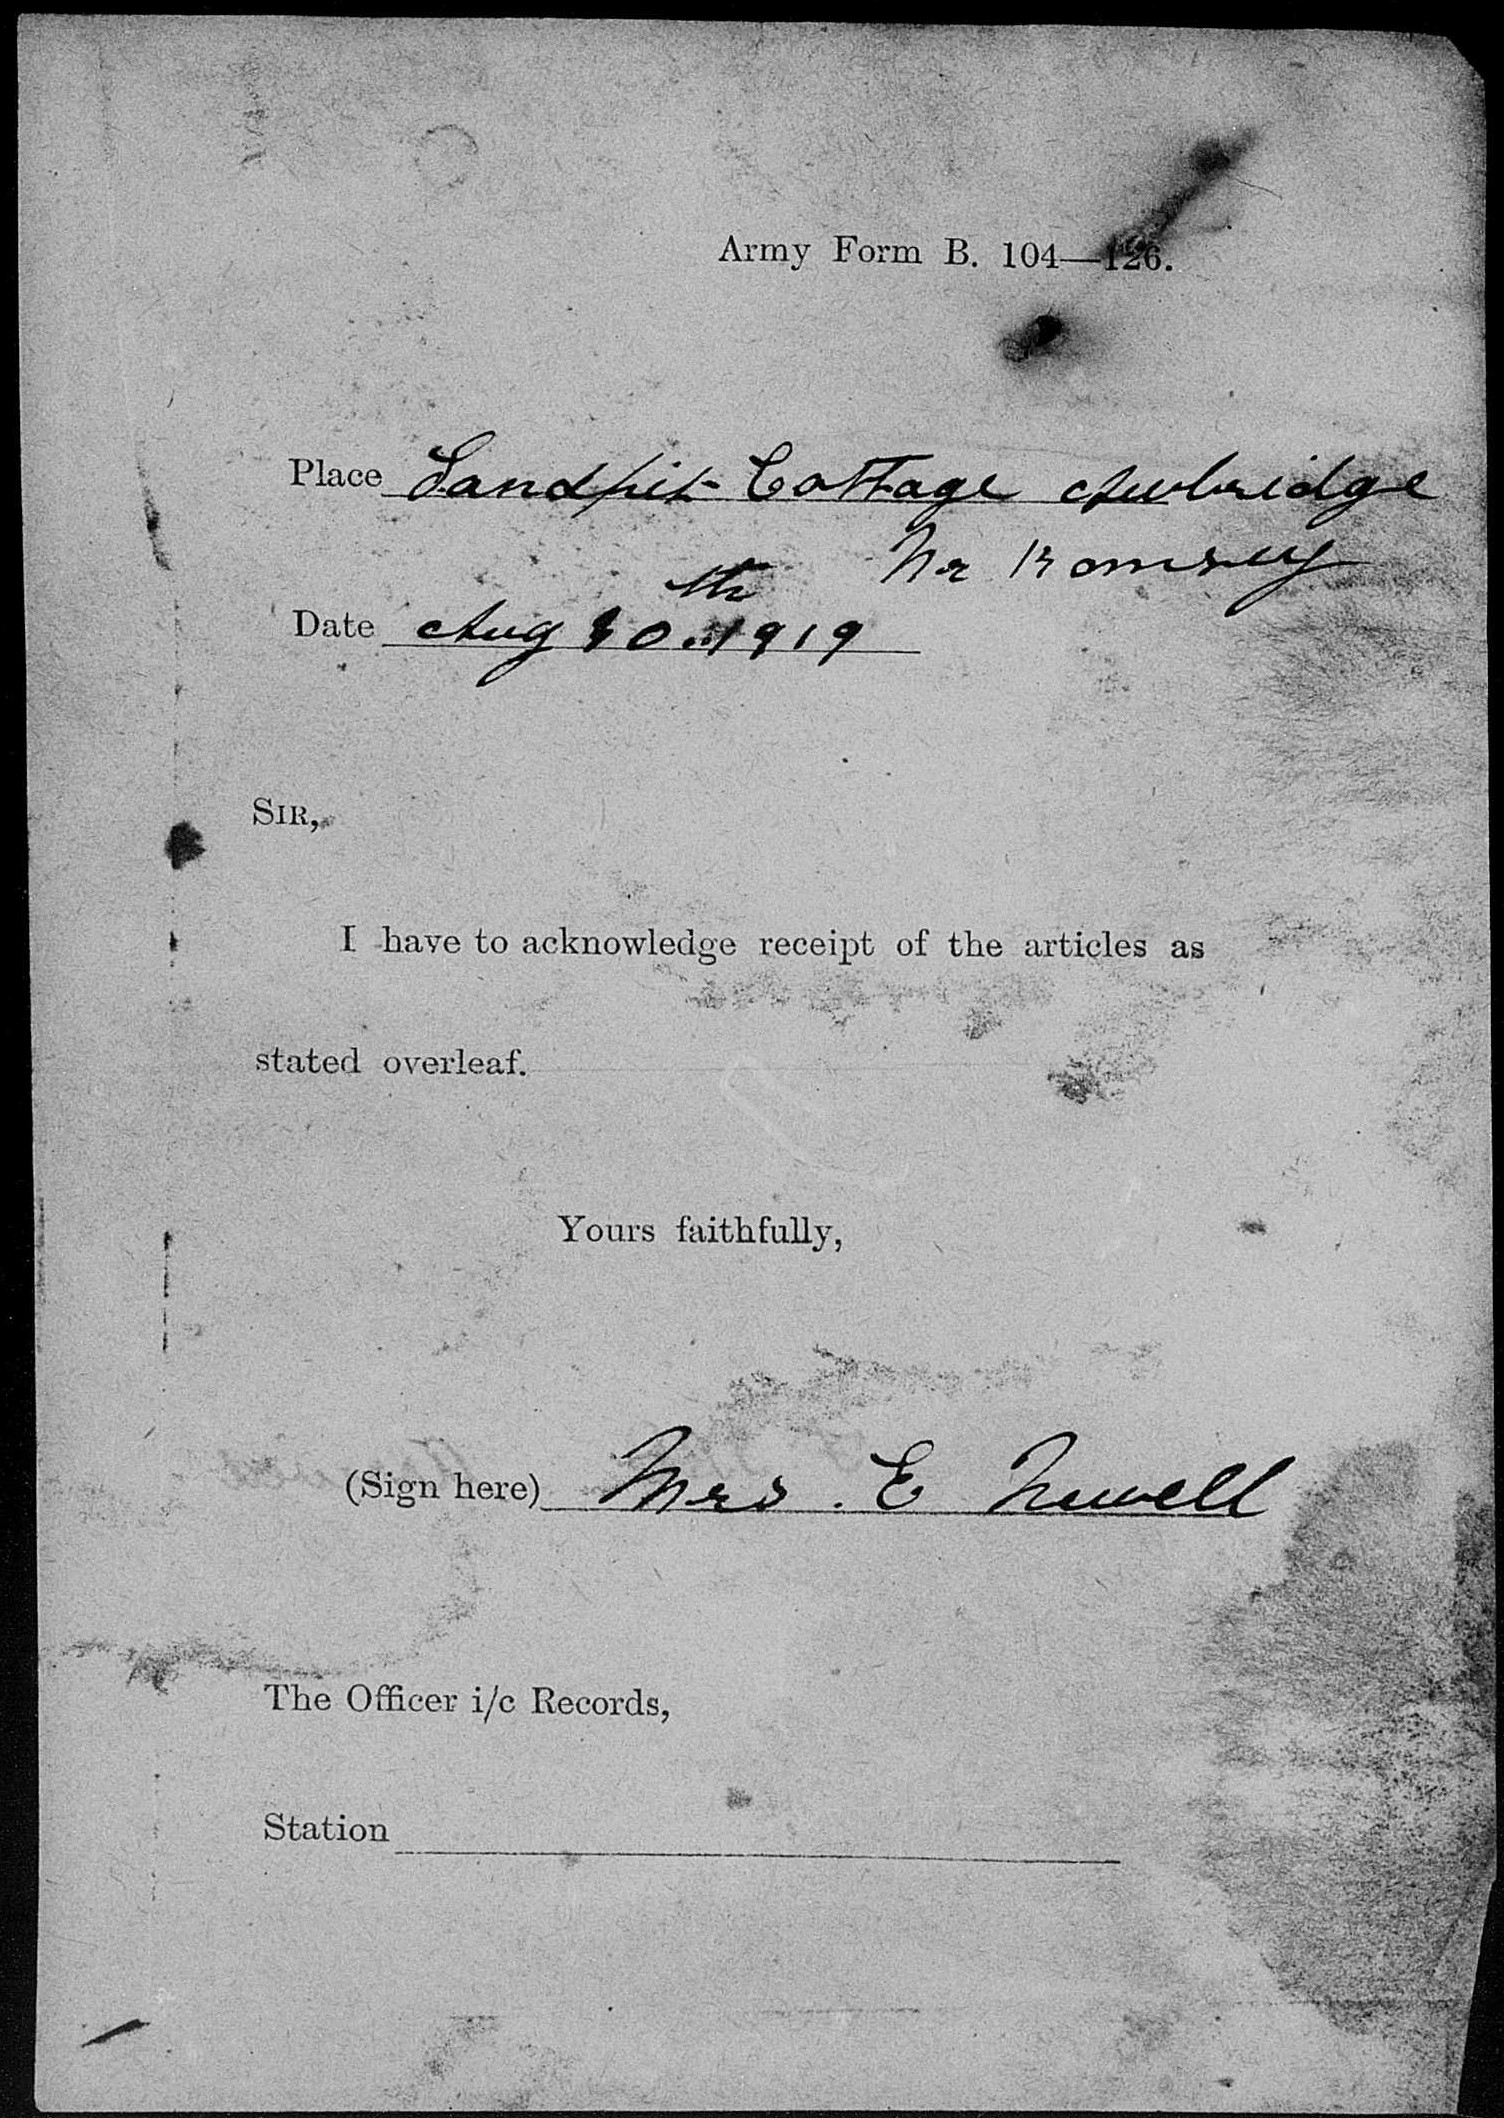 Army Form B. 104—126.
Place Sandpit Cottage Awbridge
Nr Romsey
Date Aug 10th 1919
SIR,
I have to acknowledge receipt of the articles as
stated overleaf.
Yours faithfully,
(Sign here) Mrs. E Newell
The Officer i/c Records,
Station